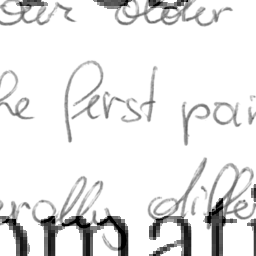 our older
he first pai
erally diffe
mati